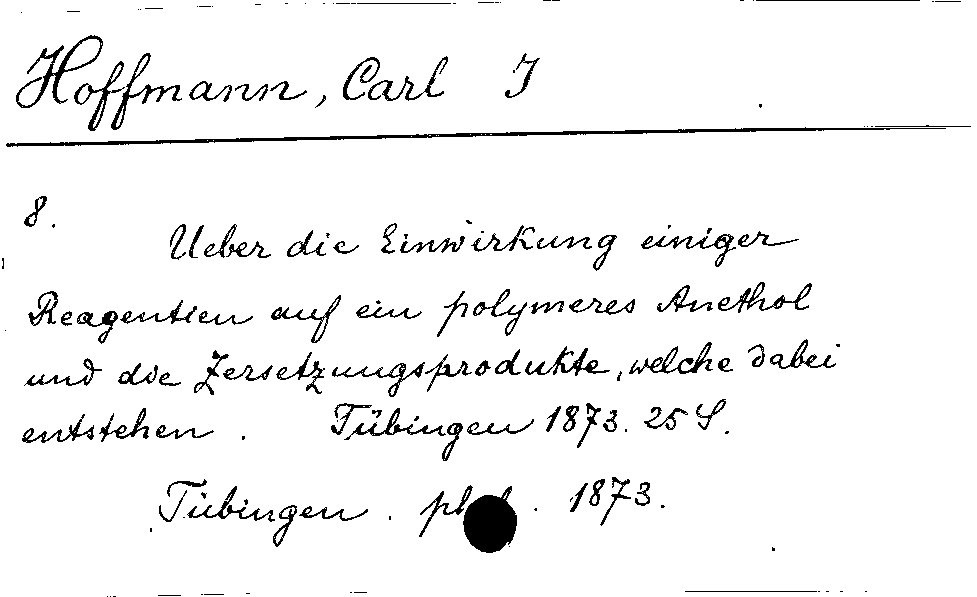 Hoffmann, Carl J
8.
Ueber die Einwirkung einiger
Reagentien auf ein polymeres Anethol
und die Zersetzungsprodukte, welche dabei
entstehen. Tübingen 1873. 25 S.
Tübingen. 1873.